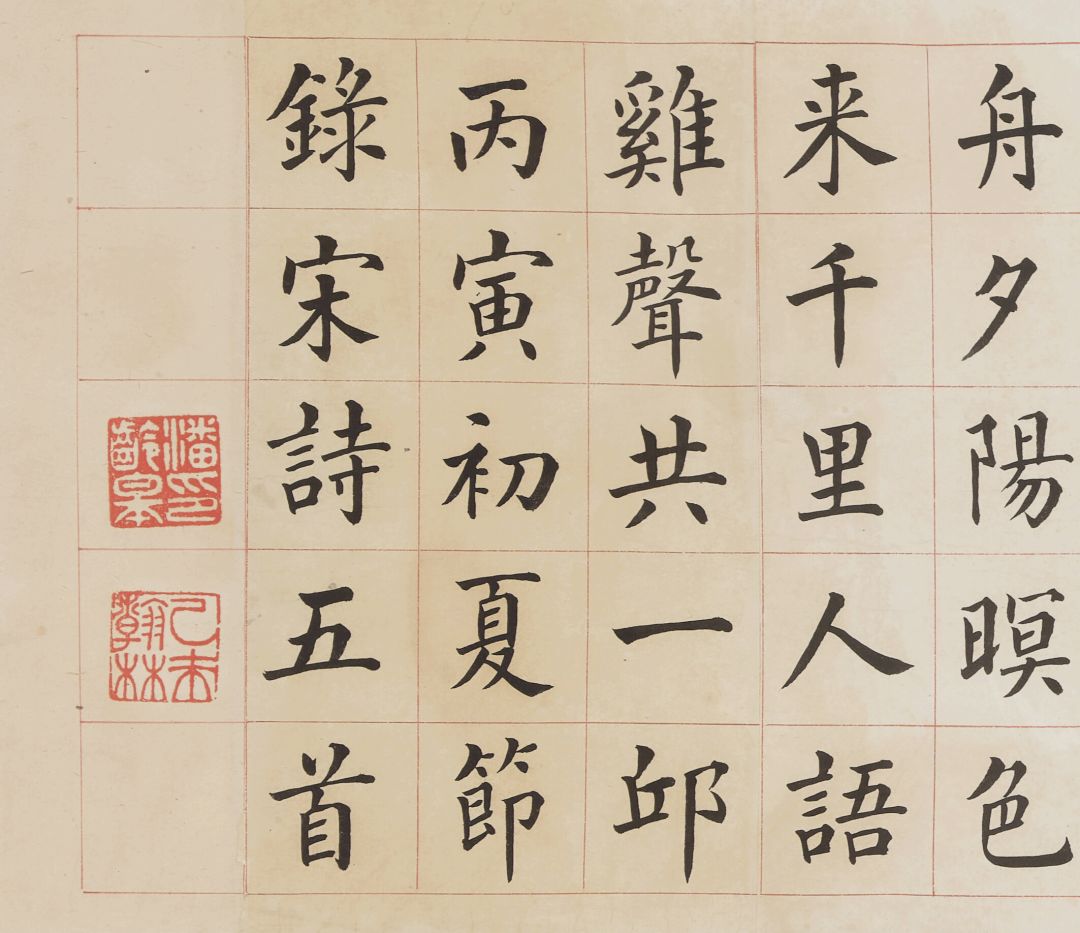 舟夕陽暝色
来千里人語
雞聲共一邱
丙寅初夏節
錄宋詩五首
潘印齡皋
乙未翰林